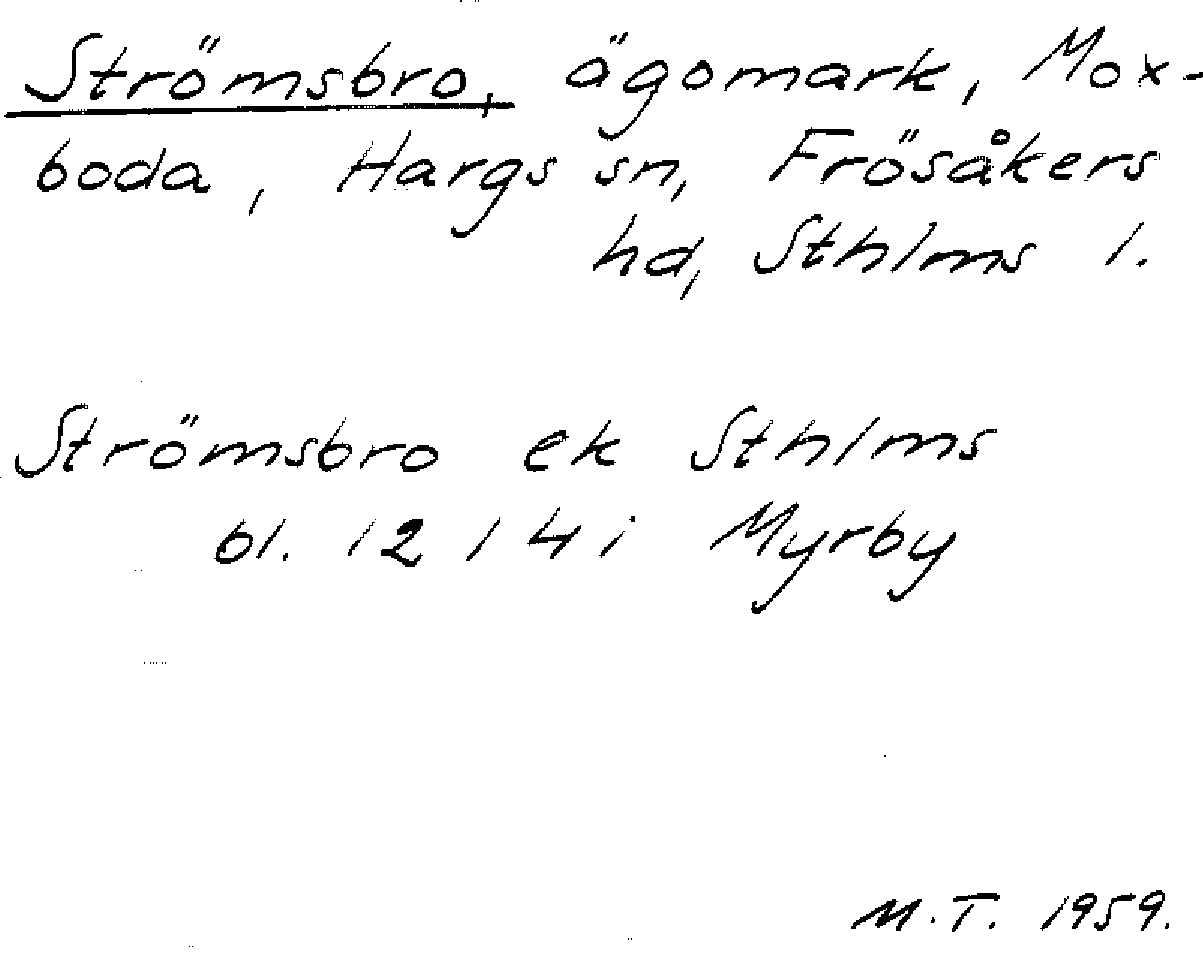 Strömsbro, ägomark, Mox-
boda, Hargs sn, Frösåkers
hd, Sthlms l.
Strömsbro ek Sthlms
bl. 12 I 4 i Myrby
M.T. 1959.